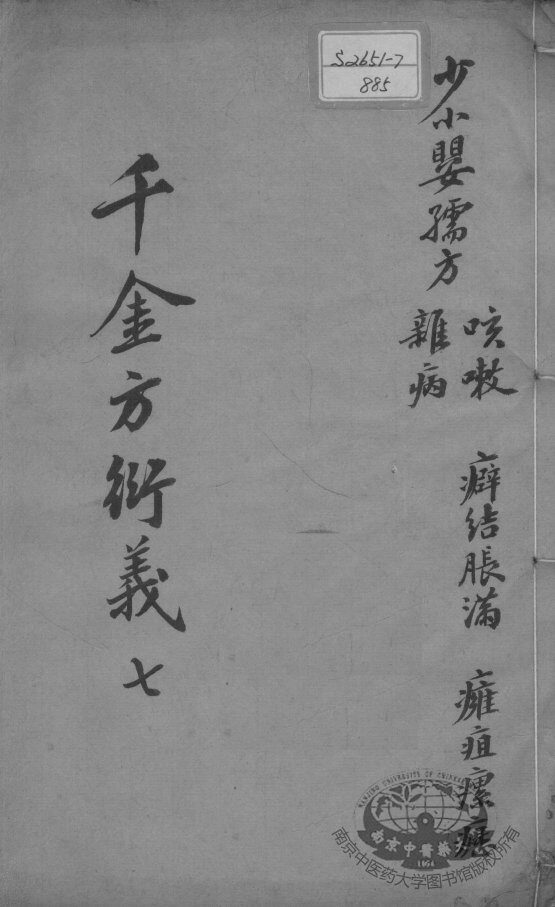 S2651-7
885
少小嬰孺方
咳嗽 癖結脹滿 癰疽瘰癧
雜病
千金方衍義 七
南京中医药大学图书馆版权所有
NANJING UNIVERSITY OF CHINESE
南京中醫藥
1954